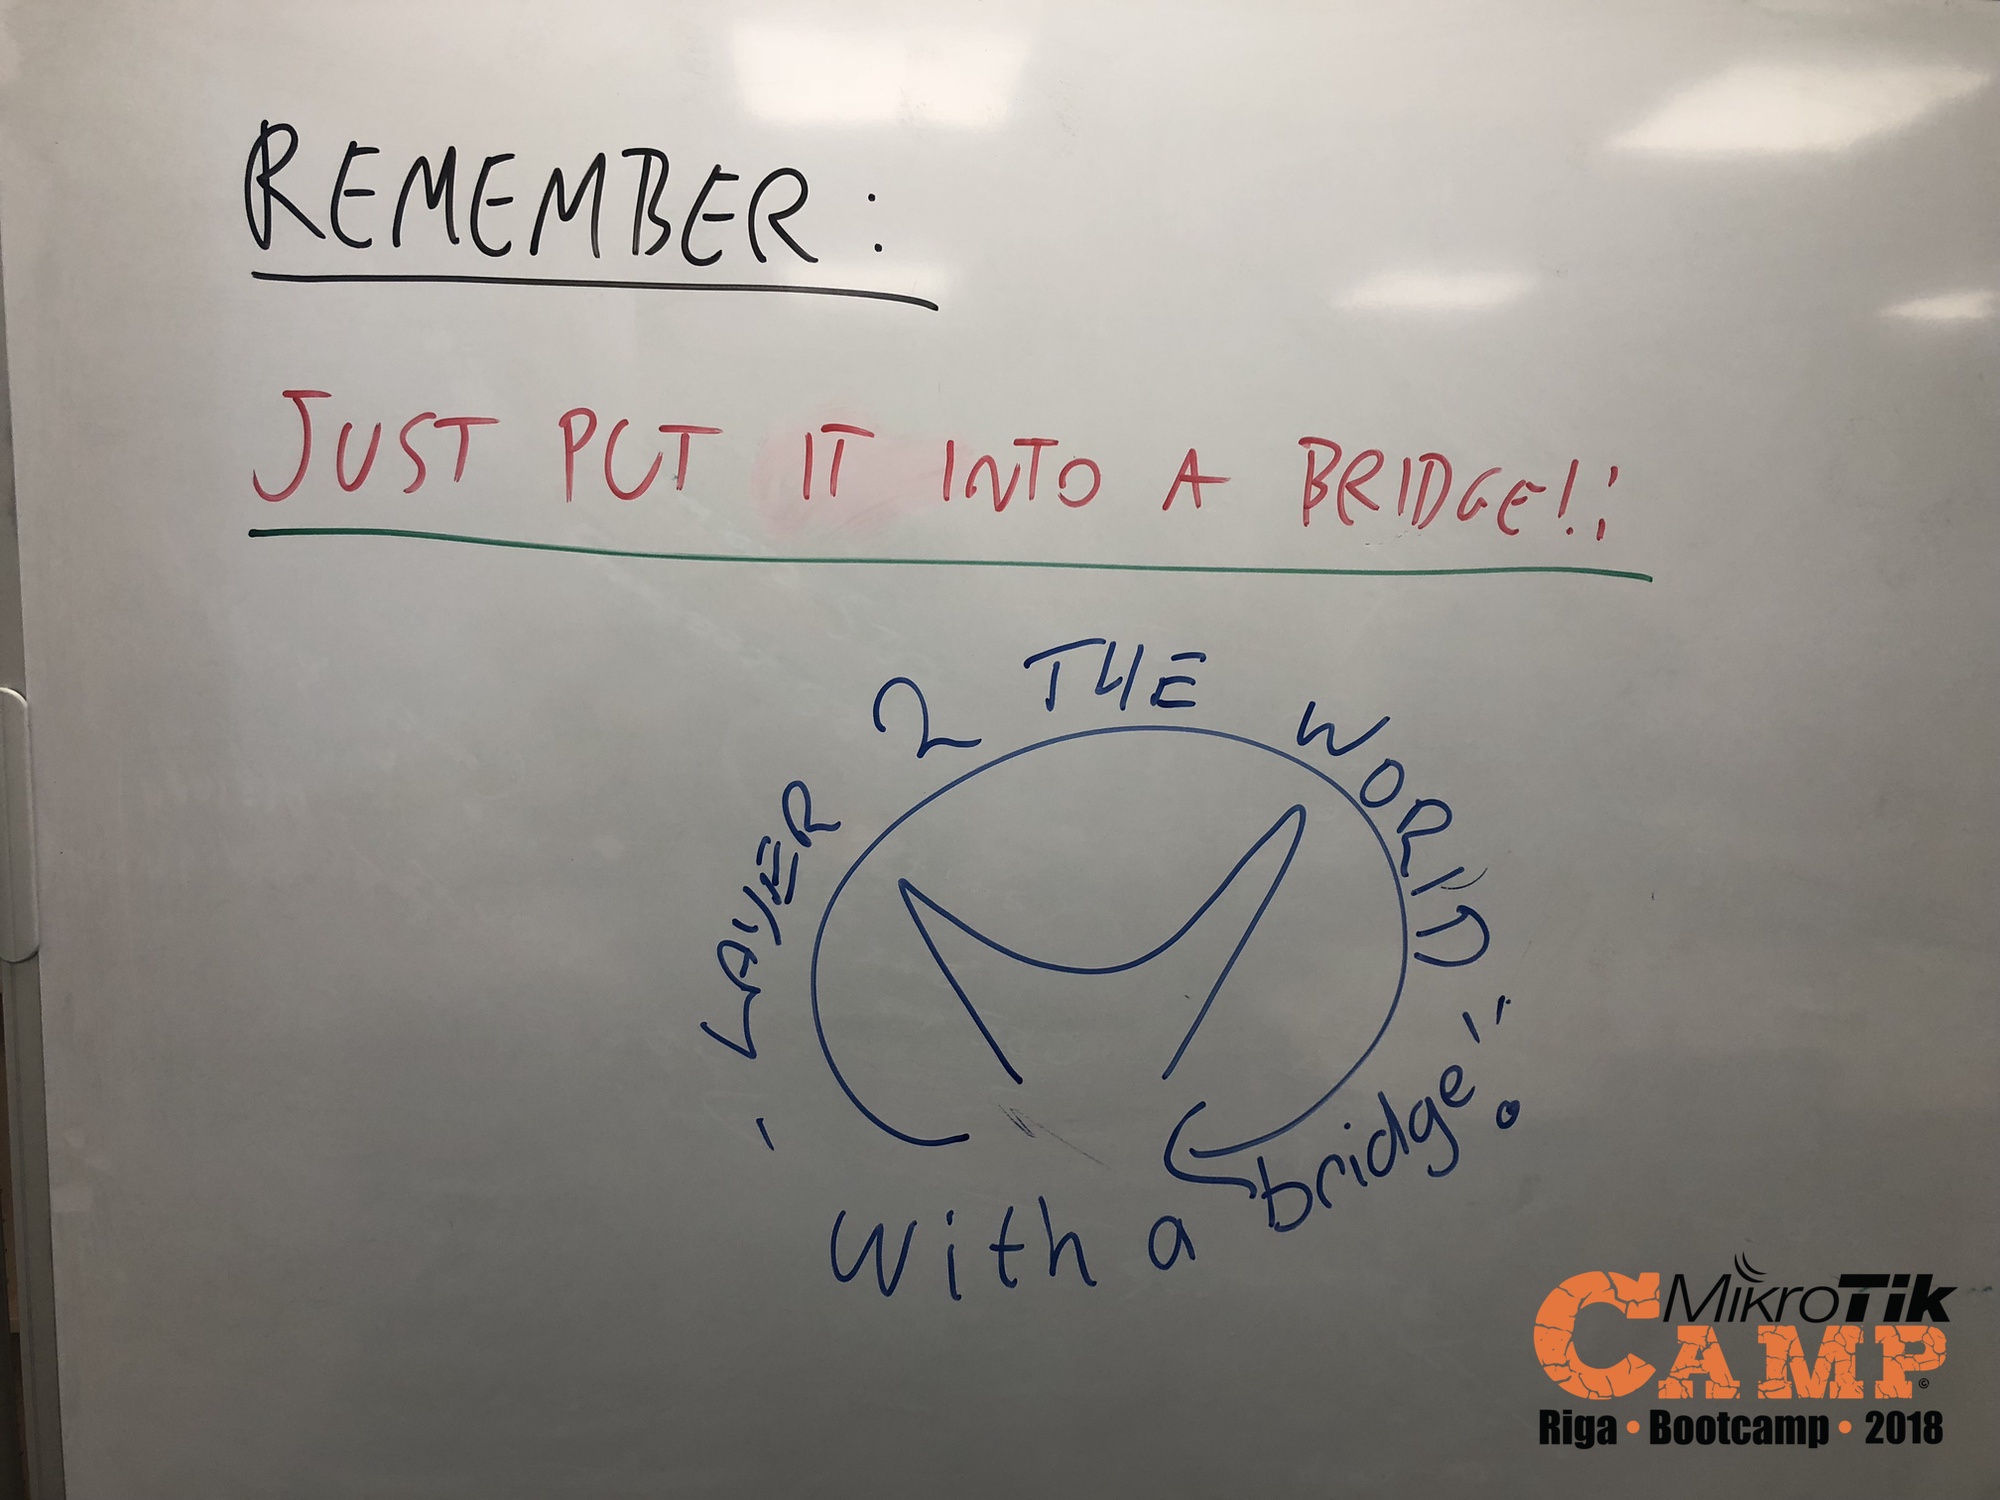 REMEMBER:
JUST PUT IT INTO A BRIDGE!!
LAYER 2 THE WORLD
with a bridge!!
MikroTik
CAMP
Riga • Bootcamp • 2018